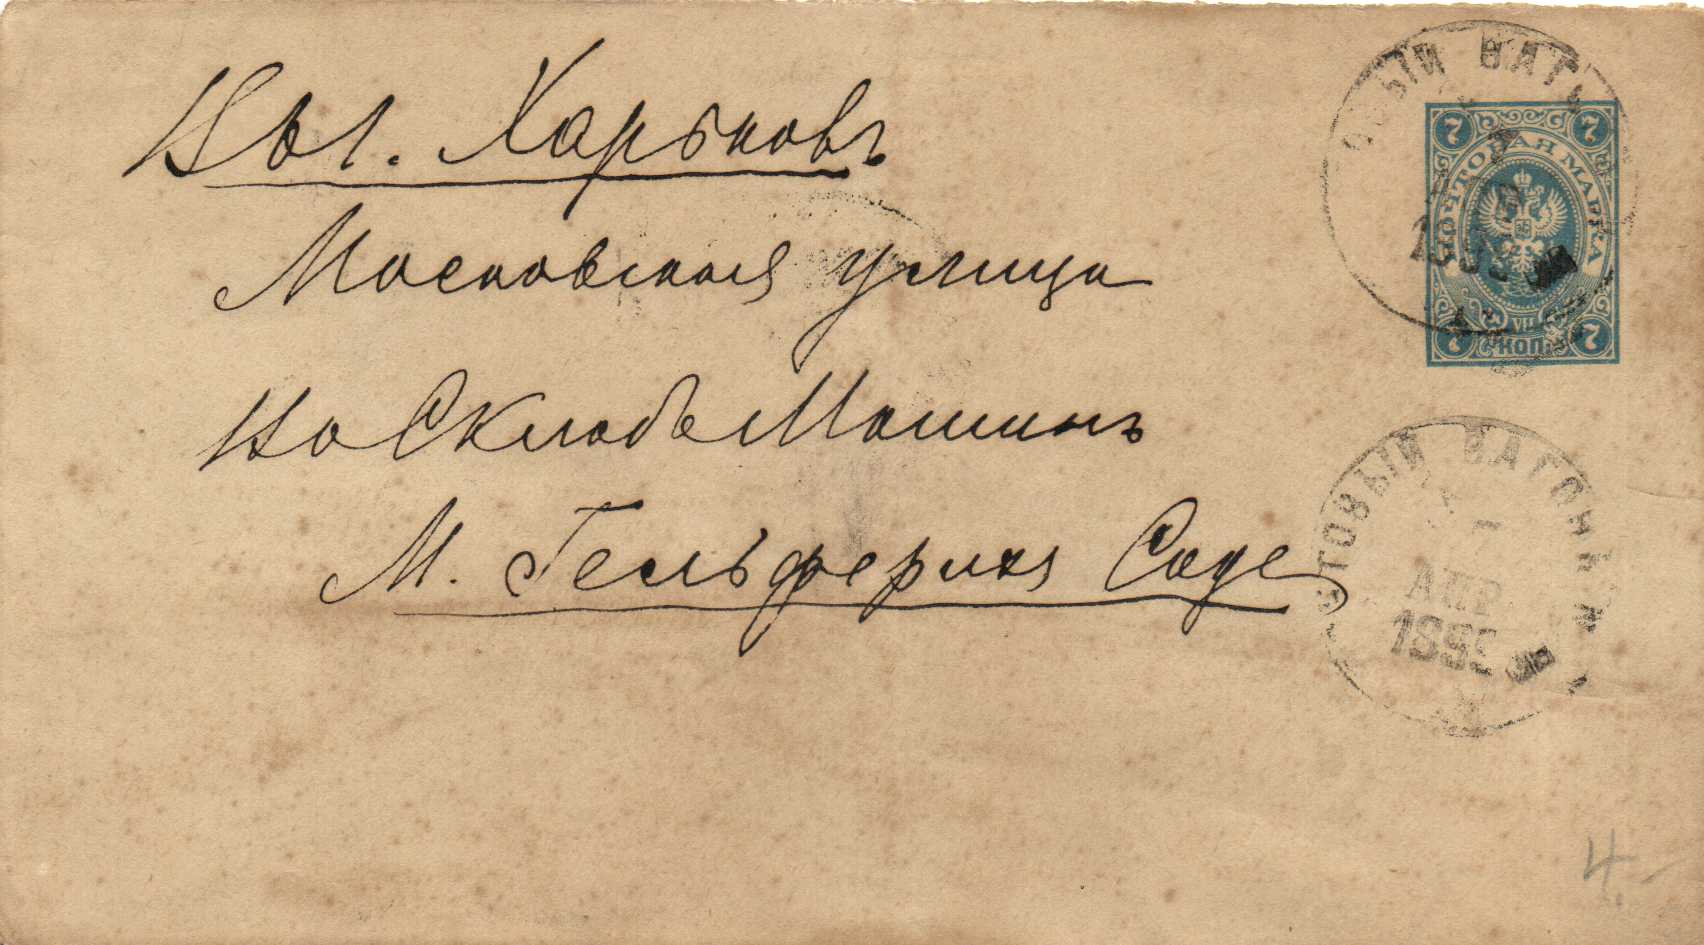 Въ г. Харьковъ
Московская улица
На Складѣ Машинъ
М. Гельферихъ Саде
ПОЧТОВАЯ МАРКА
7 7
7 7
VII
КОП.
ОВЫЙ ВАГ
7
189
ТОВЫЙ ВАГОНЪ
7
АПР
189
4.-